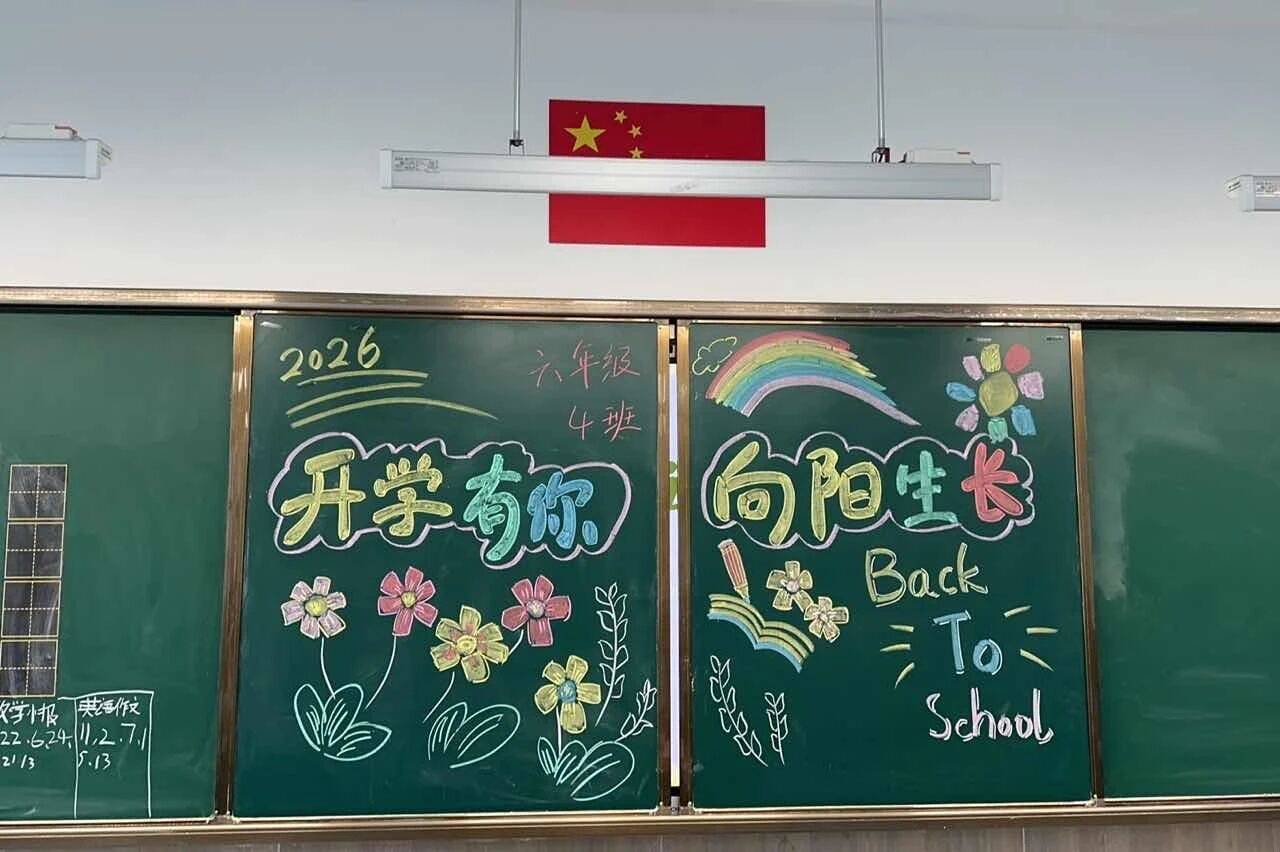 2026
六年级
4班
开学有你
向阳生长
Back
To
School
学小报
22.6.24.
21 13
英语作文
11.2.7.1
5.13